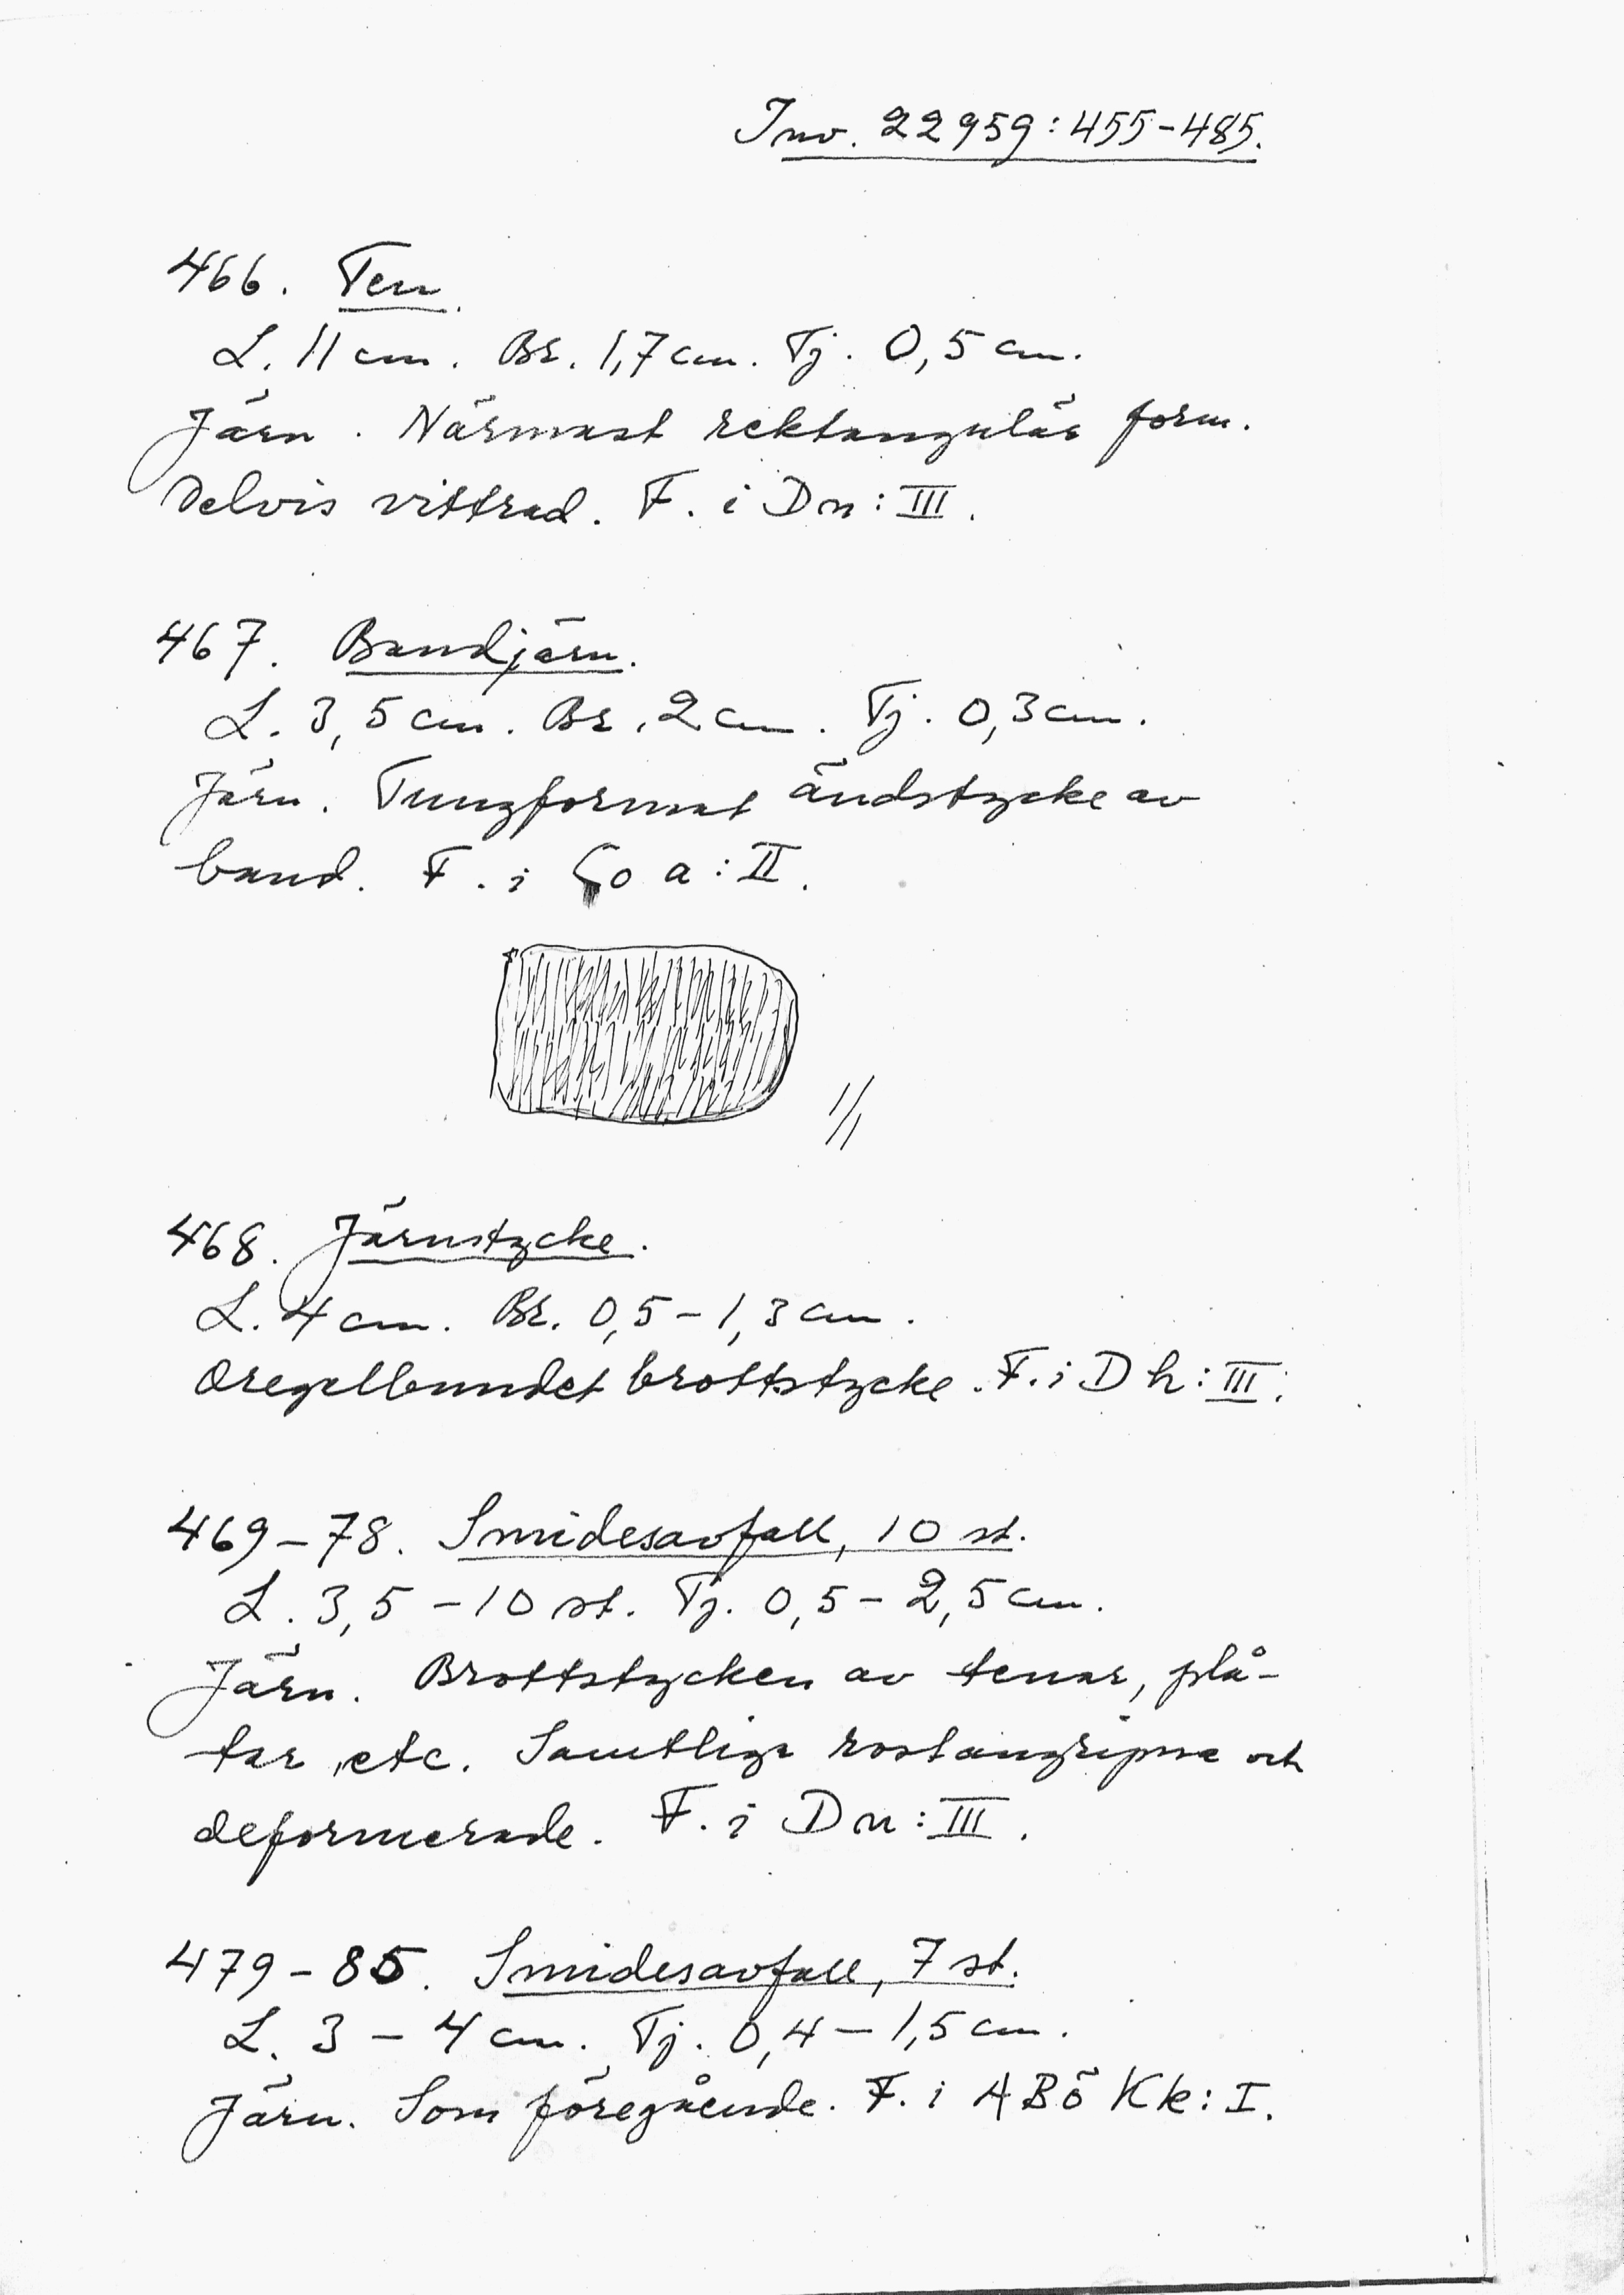 Inv. 22959:455-485.
466. Ten.
L. 11 cm. Br. 1,7 cm. Tj. 0,5 cm.
Järn. Närmast rektangulär form.
Delvis vittrad. F. i Dn:III.
467. Bandjärn.
L. 3,5 cm. Br. 2 cm. Tj. 0,3 cm.
Järn. Tungformat ändstycke av
band. F. i a:II.
1/1
468. Järnstycke.
L. 4 cm. Br. 0,5-1,3 cm.
Oregelbundet brottstycke. F. i Dh:III.
469-78. Smidesavfall, 10 st.
L. 3,5-10 st. Tj. 0,5-2,5 cm.
Järn. Brottstycken av tenar, plå-
tar, etc. Samtliga rostangripna och
deformerade. F. i Dn:III.
479-85. Smidesavfall, 7 st.
L. 3-4 cm. Tj. 0,4-1,5 cm.
Järn. Som föregående. F. i ABö Kk:I.